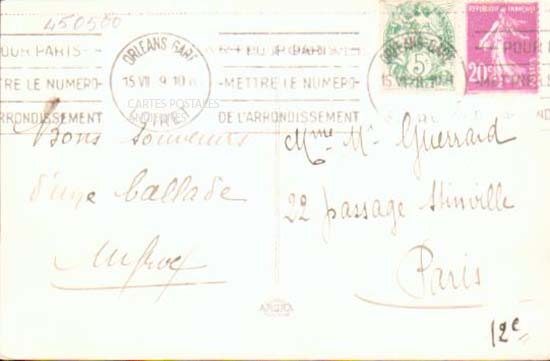 450500
POUR PARIS
METTRE LE NUMERO
DE L'ARRONDISSEMENT
ORLEANS GARE
15 VII 9 10
POUR PARIS
METTRE LE NUMERO
DE L'ARRONDISSEMENT
REPUBLIQUE FRANÇAISE
5
20c
CARTES POSTALES
ANCIENNES
Bons Souvenirs
d'une ballade
Mme Mr Guerrard
22 passage Stinville
Paris
12e